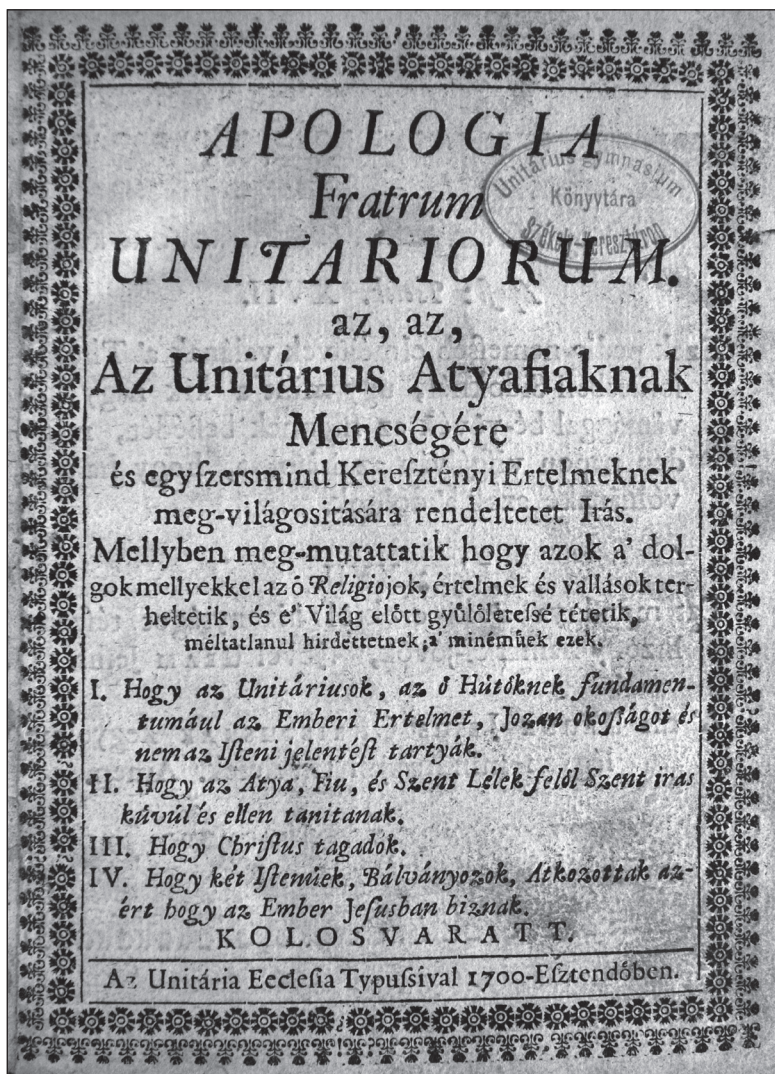 APOLOGIA
Fratrum
UNITARIORUM.
az, az,
Az Unitárius Atyafiaknak
Mencségére
és egyſzersmind Kereſztényi Ertelmeknek
meg-világositására rendeltetet Irás.
Mellyben meg-mutattatik hogy azok a' dol-
gok mellyekkel az ő Religiojok, értelmek és vallások ter-
heltetik, és e' Világ előtt gyűlőletessé tétetik,
méltatlanul hirdettetnek, a' minéműek ezek.
I. Hogy az Unitáriusok, az ő Hűtőknek fundamen-
tumául az Emberi Ertelmet, Jozan okoſságot és
nem az Iſteni jelentéſt tartyák.
II. Hogy az Atya, Fiu, és Szent Lélek felől Szent iras
kűvűl és ellen tanitanak.
III. Hogy Chriſtus tagadók.
IV. Hogy két Iſtenűek, Bálványozok, Atkozottak az-
ért hogy az Ember Jeſusban biznak.
KOLOSVARATT.
Az Unitária Ecclesia Typuſsival 1700-Eſztendőben.
Unitárius gymnasium
Könyvtára
Székely Keresztúron